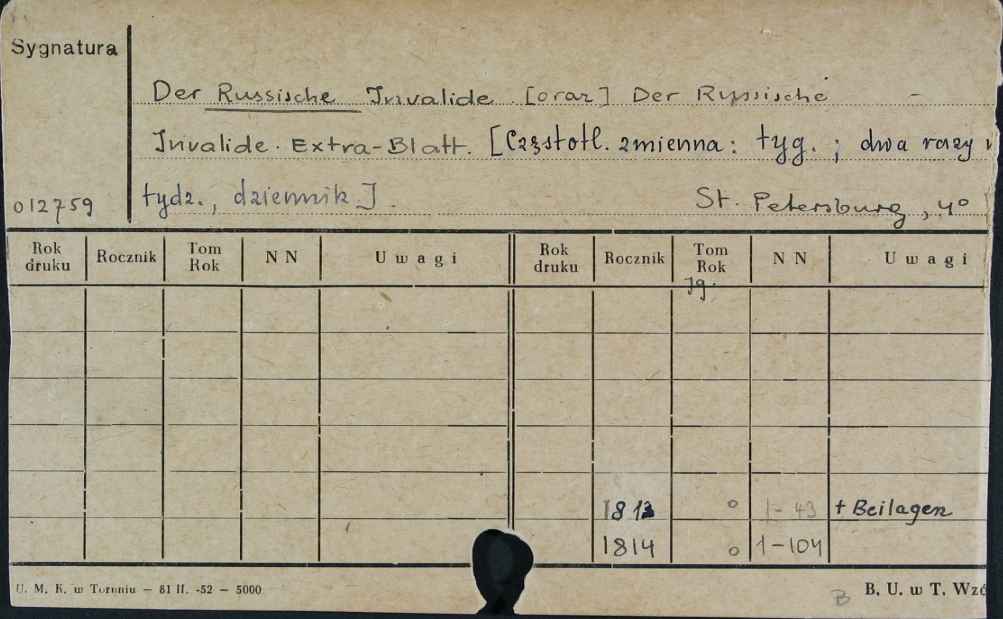 Sygnatura
Der Russische Invalide [oraz] Der Russische -
Invalide. Extra-Blatt. [Częstotl. zmienna: tyg.; dwa razy
012759 tydz., dziennik]. St. Petersburg, 4°
Rok druku Rocznik Tom Rok N N Uwagi Rok druku Rocznik Tom Rok N N Uwagi
Jg.
1813 ° 1-43 + Beilagen
1814 ° 1-104
U. M. K. w Toruniu — 81 II. -52 — 5000 B B. U. w T.